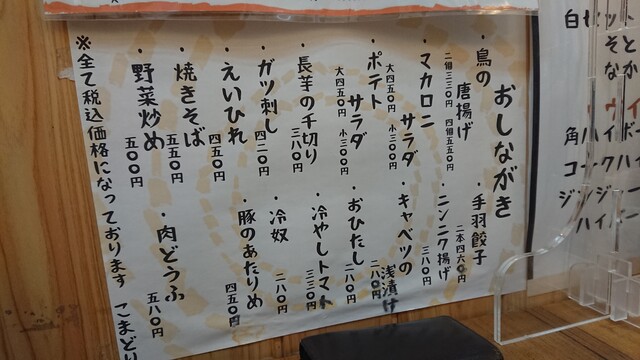 おしながき
・鳥の唐揚げ
二個三三〇円 四個五五〇円
・手羽餃子
二本四六〇円
・マカロニサラダ
大四五〇円 小三〇〇円
・ニンニク揚げ
三八〇円
・ポテトサラダ
大四五〇円 小三〇〇円
・キャベツの浅漬け
二八〇円
・長芋の千切り
三八〇円
・おひたし
二八〇円
・ガツ刺し
四二〇円
・冷やしトマト
三三〇円
・えいひれ
四五〇円
・冷奴
二八〇円
・焼きそば
五五〇円
・豚のあたりめ
四五〇円
・野菜炒め
五〇〇円
・肉どうふ
五八〇円
※全て税込価格になっております
こまどり
白セット
そと
なか
角ハイボー
コークハイ
ジンジャ
ハイボー